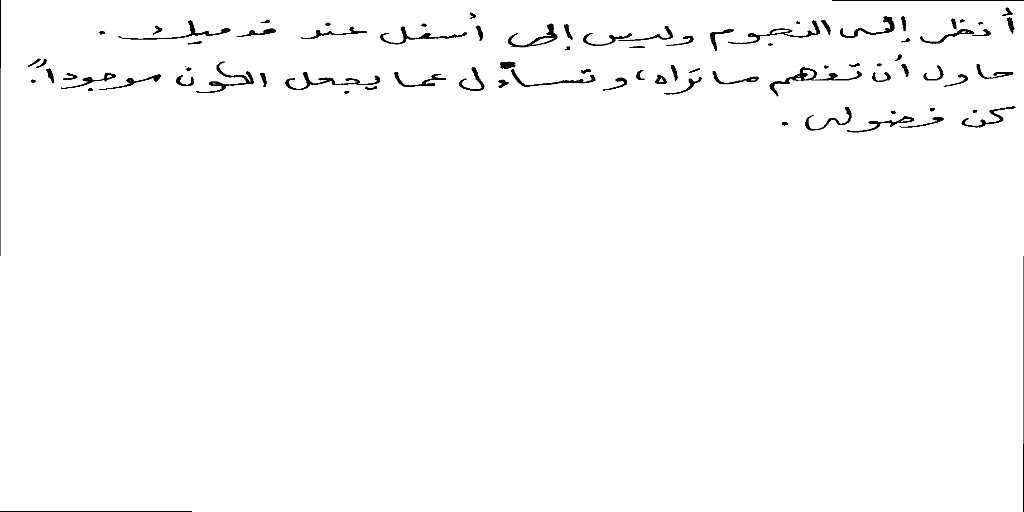 أنظر إلى النجوم وليس إلى أسفل عند قدميك .
حاول أن تفهم ما تراه، وتسأل عما يجعل الكون موجوداً.
كن فضولي .